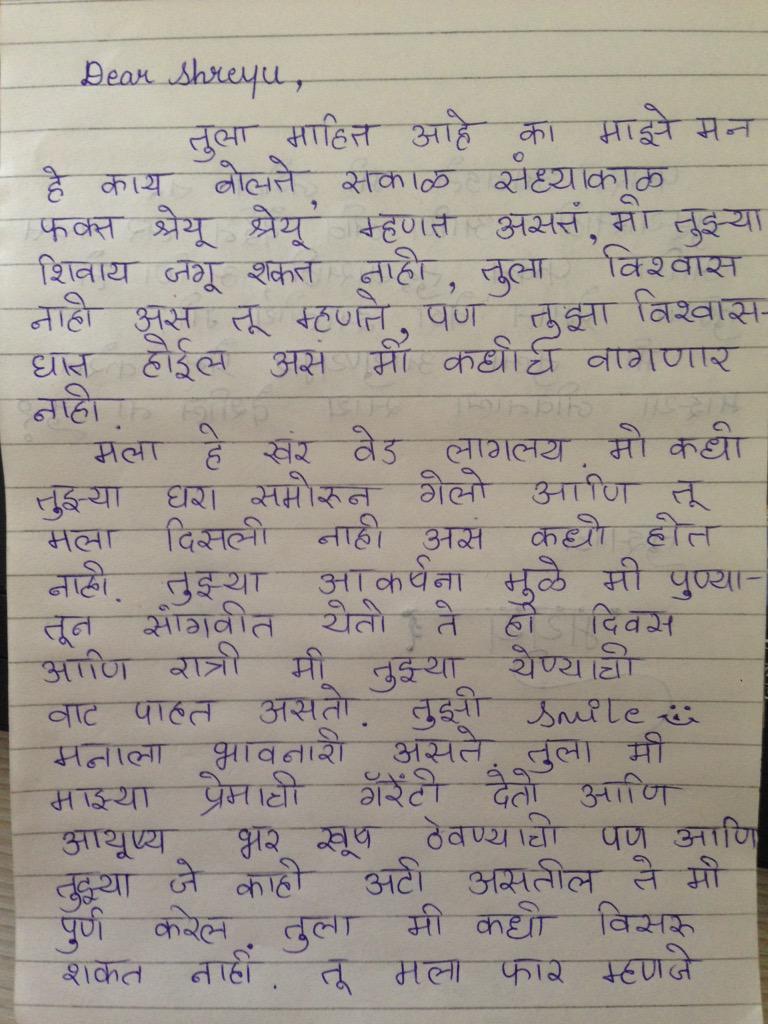 Dear Shreyu,
तुला माहित आहे का माझे मन
हे काय बोलते, सकाळ संध्याकाळ
फक्त श्रेयू श्रेयू म्हणत असतं, मी तुझ्या
शिवाय जगू शकत नाही, तुला विश्वास
नाही असं तू म्हणते, पण तुझा विश्वास-
घात होईल असं मी कधीही वागणार
नाही.
मला हे खरं वेड लागलय. मी कधी
तुझ्या घरा समोरून गेलो आणि तू
मला दिसली नाही असं कधी होत
नाही. तुझ्या आकर्षना मुळे मी पुण्या-
तून सांगवीत येतो ते ही दिवस
आणि रात्री मी तुझ्या येण्याची
वाट पाहत असतो. तुझी smile
मनाला भावनारी असते. तुला मी
माझ्या प्रेमाची गॅरेंटी देतो आणि
आयूष्य भर खूष ठेवण्याची पण आणि
तुझ्या जे काही अटी असतील ते मी
पुर्ण करेल. तुला मी कधी विसरू
शकत नाही. तू मला फार म्हणजे